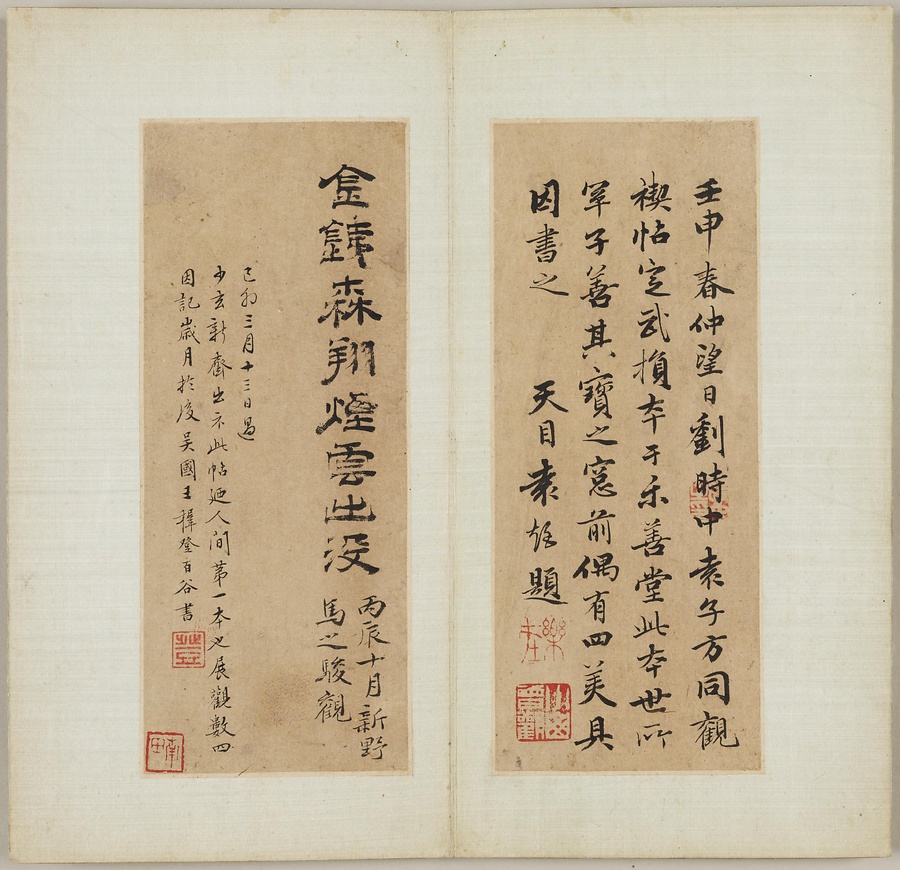 壬申春仲望日劉時中袁子方同觀
禊帖定武損本于樂善堂此本世所
罕子善其寶之窓前偶有四美具
因書之　天目袁　題
金鐵森翔煙雲出没
丙辰十月新野
馬之駿觀
己卯三月十三日過
少玄新齋出示此帖廼人間第一本也展觀數四
因記歲月於後吳國王穉登百谷書